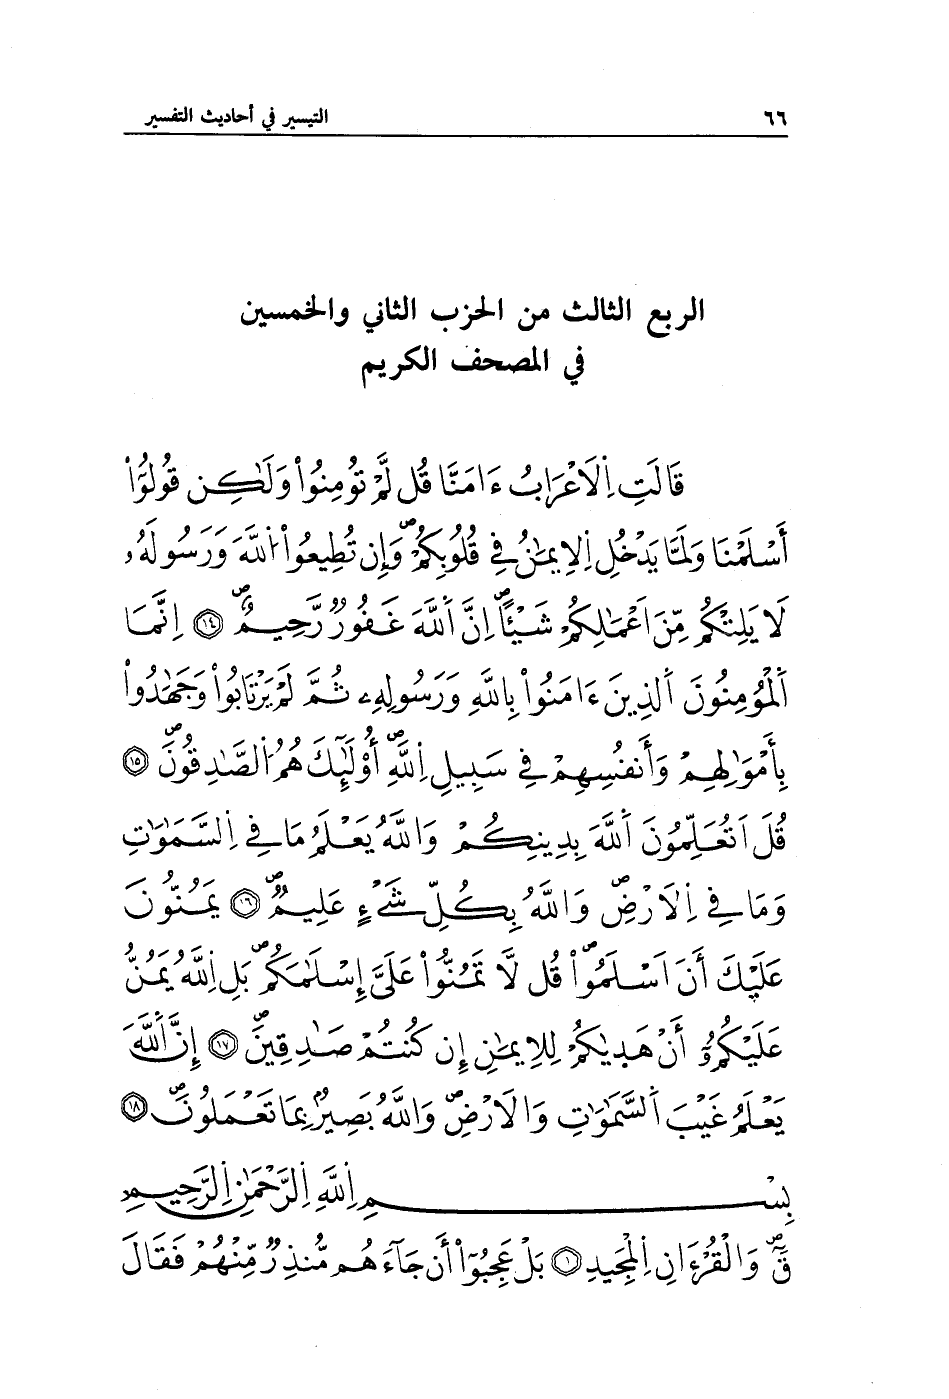 ٦٦ التيسير في أحاديث التفسير
الربع الثالث من الحزب الثاني والخمسين
في المصحف الكريم
قَالَتِ اِ۬لَاعْرَابُ ءَامَنَّا قُل لَّمْ تُومِنُواْ وَلَٰكِن قُولُوٓاْ
أَسْلَمْنَا وَلَمَّا يَدْخُلِ اِ۬لِايمَٰنُ فِي قُلُوبِكُمْۖ وَإِن تُطِيعُواْ اُ۬للَّهَ وَرَسُولَهُۥ
لَا يَلِتْكُم مِّنَ اَعْمَٰلِكُمْ شَيْـًٔاۖ اِنَّ اَ۬للَّهَ غَفُورٌ رَّحِيمٌۖ ۝١٤ اِنَّمَا
اَ۬لْمُؤْمِنُونَ اَ۬لذِينَ ءَامَنُواْ بِاللَّهِ وَرَسُولِهِۦ ثُمَّ لَمْ يَرْتَابُواْ وَجَٰهَدُواْ
بِأَمْوَٰلِهِمْ وَأَنفُسِهِمْ فِي سَبِيلِ اِ۬للَّهِۖ أُوْلَٰٓئِكَ هُمُ اُ۬لصَّٰدِقُونَۖ ۝١٥
قُلَ اَتُعَلِّمُونَ اَ۬للَّهَ بِدِينِكُمْ وَاللَّهُ يَعْلَمُ مَا فِي اِ۬لسَّمَٰوَٰتِ
وَمَا فِي اِ۬لَارْضِۖ وَاللَّهُ بِكُلِّ شَيْءٍ عَلِيمٌۖ ۝١٦ يَمُنُّونَ
عَلَيْكَ أَنَ اَسْلَمُواْۖ قُل لَّا تَمُنُّواْ عَلَيَّ إِسْلَٰمَكُمۖ بَلِ اِ۬للَّهُ يَمُنُّ
عَلَيْكُمُۥٓ أَنْ هَدَىٰكُمْ لِلِايمَٰنِ إِن كُنتُمْ صَٰدِقِينَۖ ۝١٧ إِنَّ اَ۬للَّهَ
يَعْلَمُ غَيْبَ اَ۬لسَّمَٰوَٰتِ وَالَارْضِۖ وَاللَّهُ بَصِيرٌ بِمَا تَعْمَلُونَۖ ۝١٨
بِسْمِ اِ۬للَّهِ اِ۬لرَّحْمَٰنِ اِ۬لرَّحِيمِ
قَٓۖ وَالْقُرْءَانِ اِ۬لْمَجِيدِ ۝١ بَلْ عَجِبُوٓاْ أَن جَآءَهُم مُّنذِرٌ مِّنْهُمْ فَقَالَ